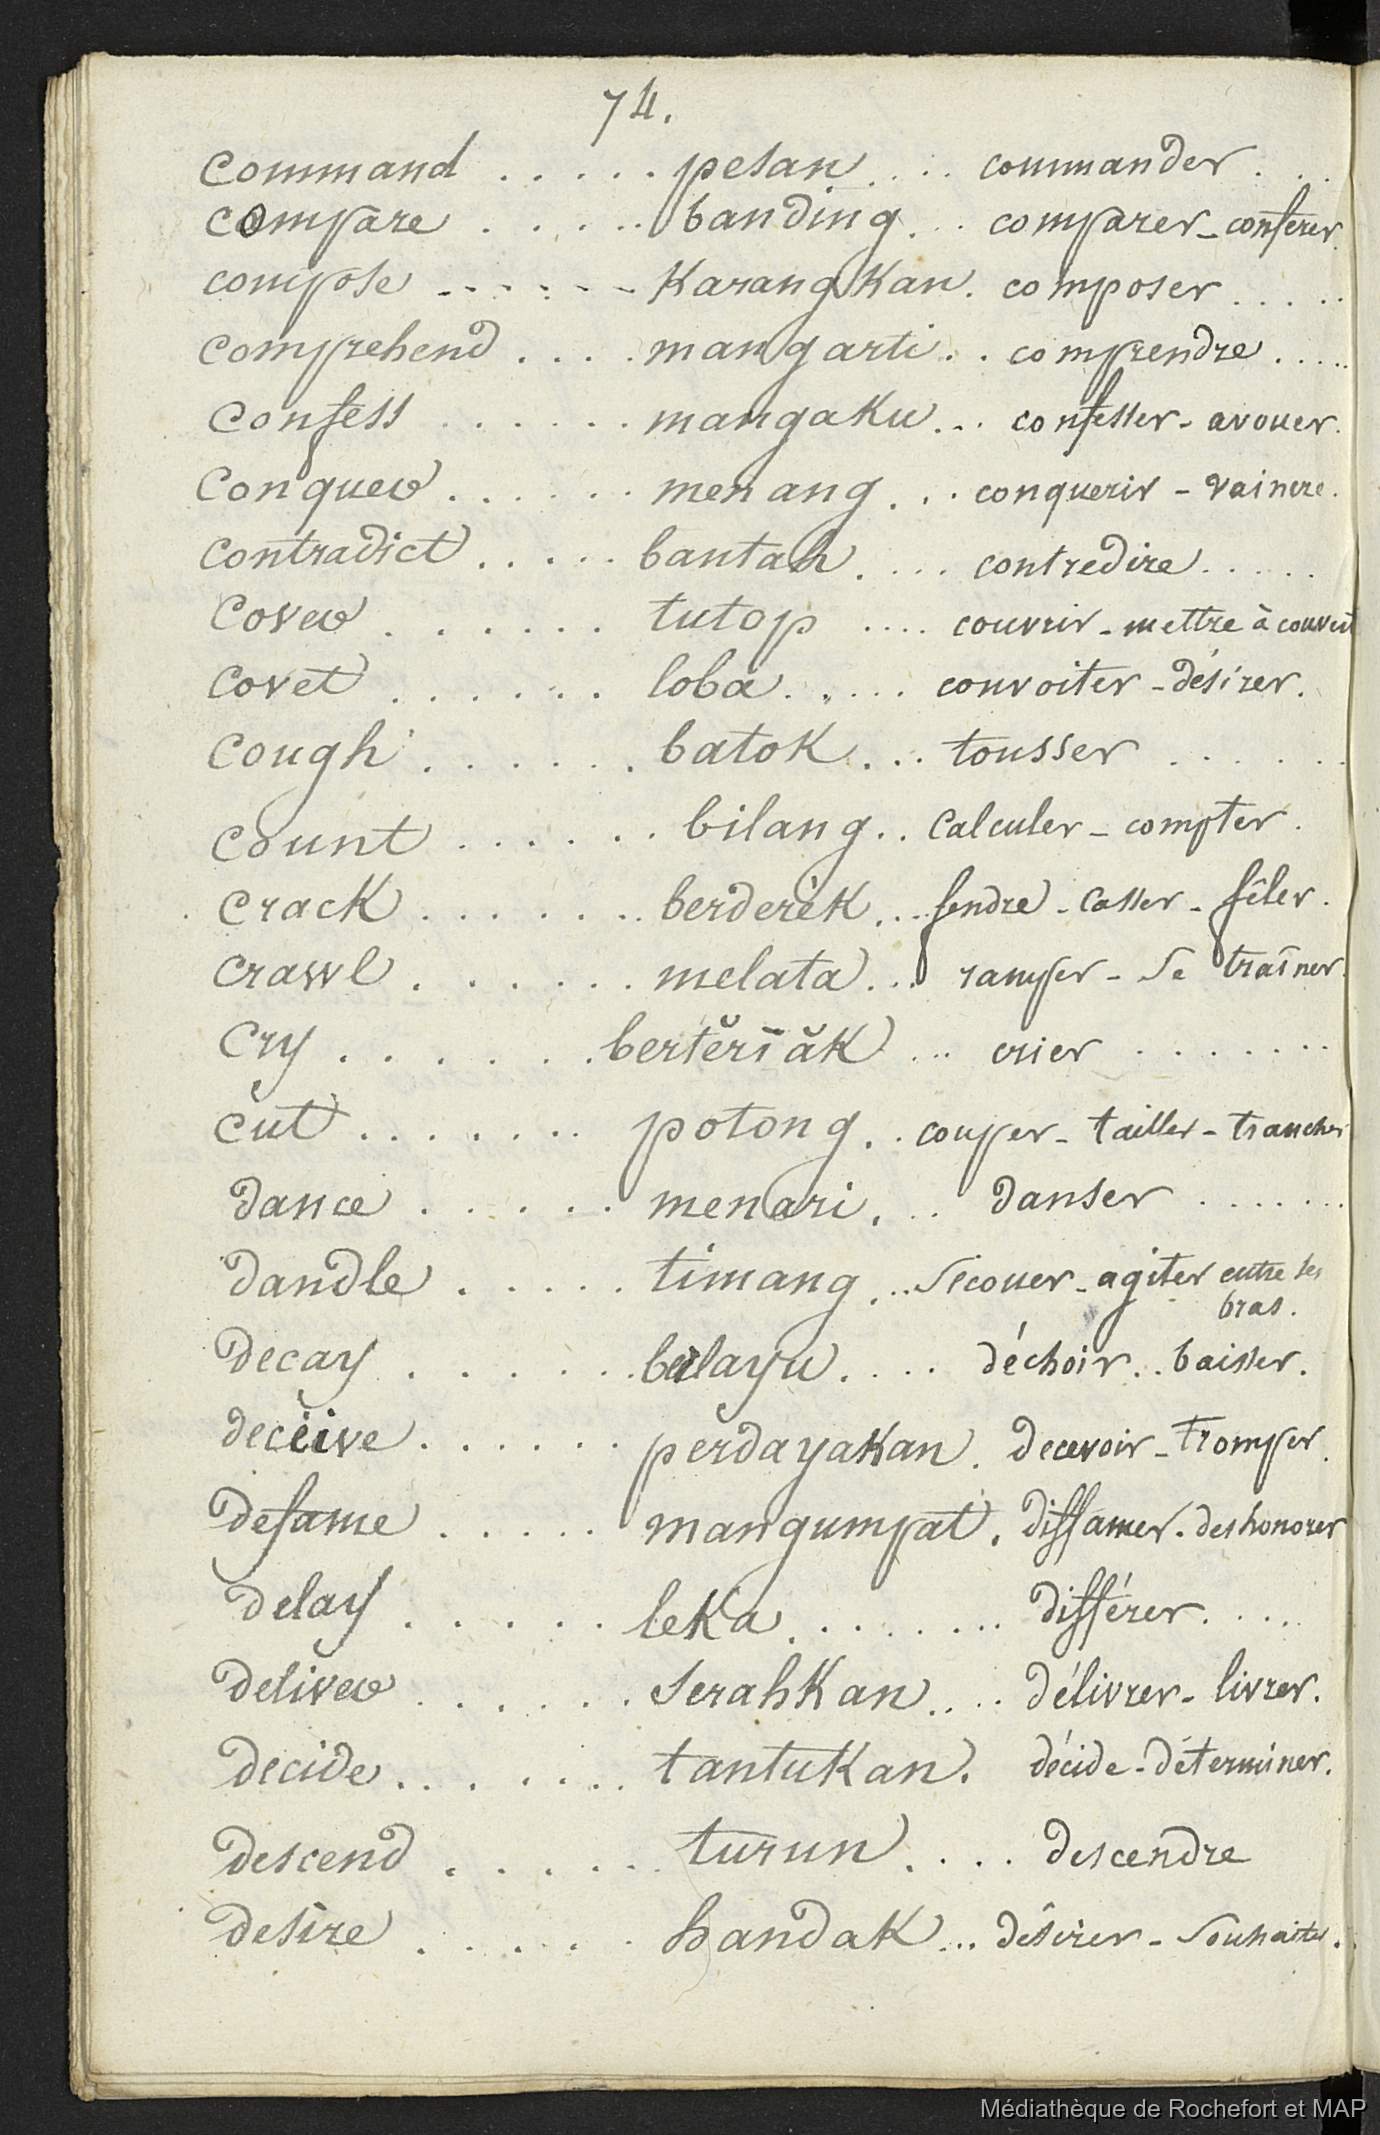 74.
command ..... pesan .... commander ...
compare ..... banding ... comparer - conferer.
compose ------ Karang Kan. composer .....
comprehend .... mangarti .. comprendre .....
confess ...... mangaku ... confesser - avouer.
conquer ...... menang ... conquerir - vaincre.
contradict ..... bantah .... contredire .....
cover ...... tutop .... couvrir - mettre à couvert
covet ...... loba ..... convoiter - désirer.
cough ...... batok ... tousser ......
count ...... bilang .. calculer - compter.
crack ....... berderèk ... fendre - casser - fêler.
crawl ...... melata ... ramper - se traîner.
cry ....... bertĕrīăk ... crier .......
cut ....... potong .. couper - tailler - trancher
dance ..... menari ... danser .......
dandle ..... timang ... secouer - agiter entre les
bras.
decay ...... balayu .... déchoir .. baisser.
deceive ...... perdayakan. decevoir - tromper.
defame ..... mangumpat. diffamer. deshonorer
delay ..... leka ........ différer .....
deliver ...... serahkan .... délivrer - livrer.
decide ....... tantukan. décide - déterminer.
descend ...... turun .... descendre
desire ..... handak ... désirer - souhaiter.
Médiathèque de Rochefort et MAP